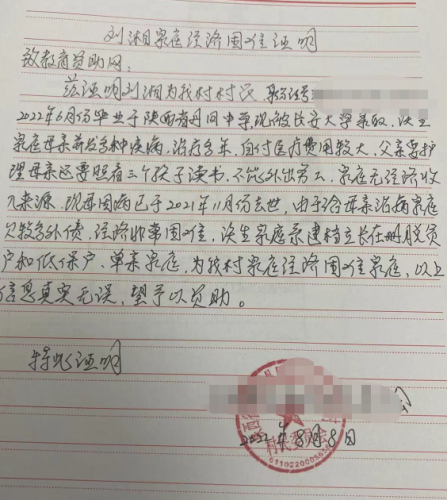 刘湘家庭经济困难证明
致教商资助网：
兹证明刘湘为我村村民，身分证号
2022年6月份毕业于陕西省丹凤中学，现被长安大学录取，该生
家庭母亲前发多种疾病，治疗多年，自付医疗费用较大，父亲要护
理母亲还要照看三个孩子读书，不能外出务工，家庭无经济收
入来源，现母因病已于2021年11月份去世，由于给母亲治病家庭
欠较多外债，经济非常困难，该生家庭系建档立卡在册脱贫
户和低保户、单亲家庭，为我村家庭经济困难家庭，以上
信息真实无误，望予以资助。
特此证明
2022年8月8日
村民委员会